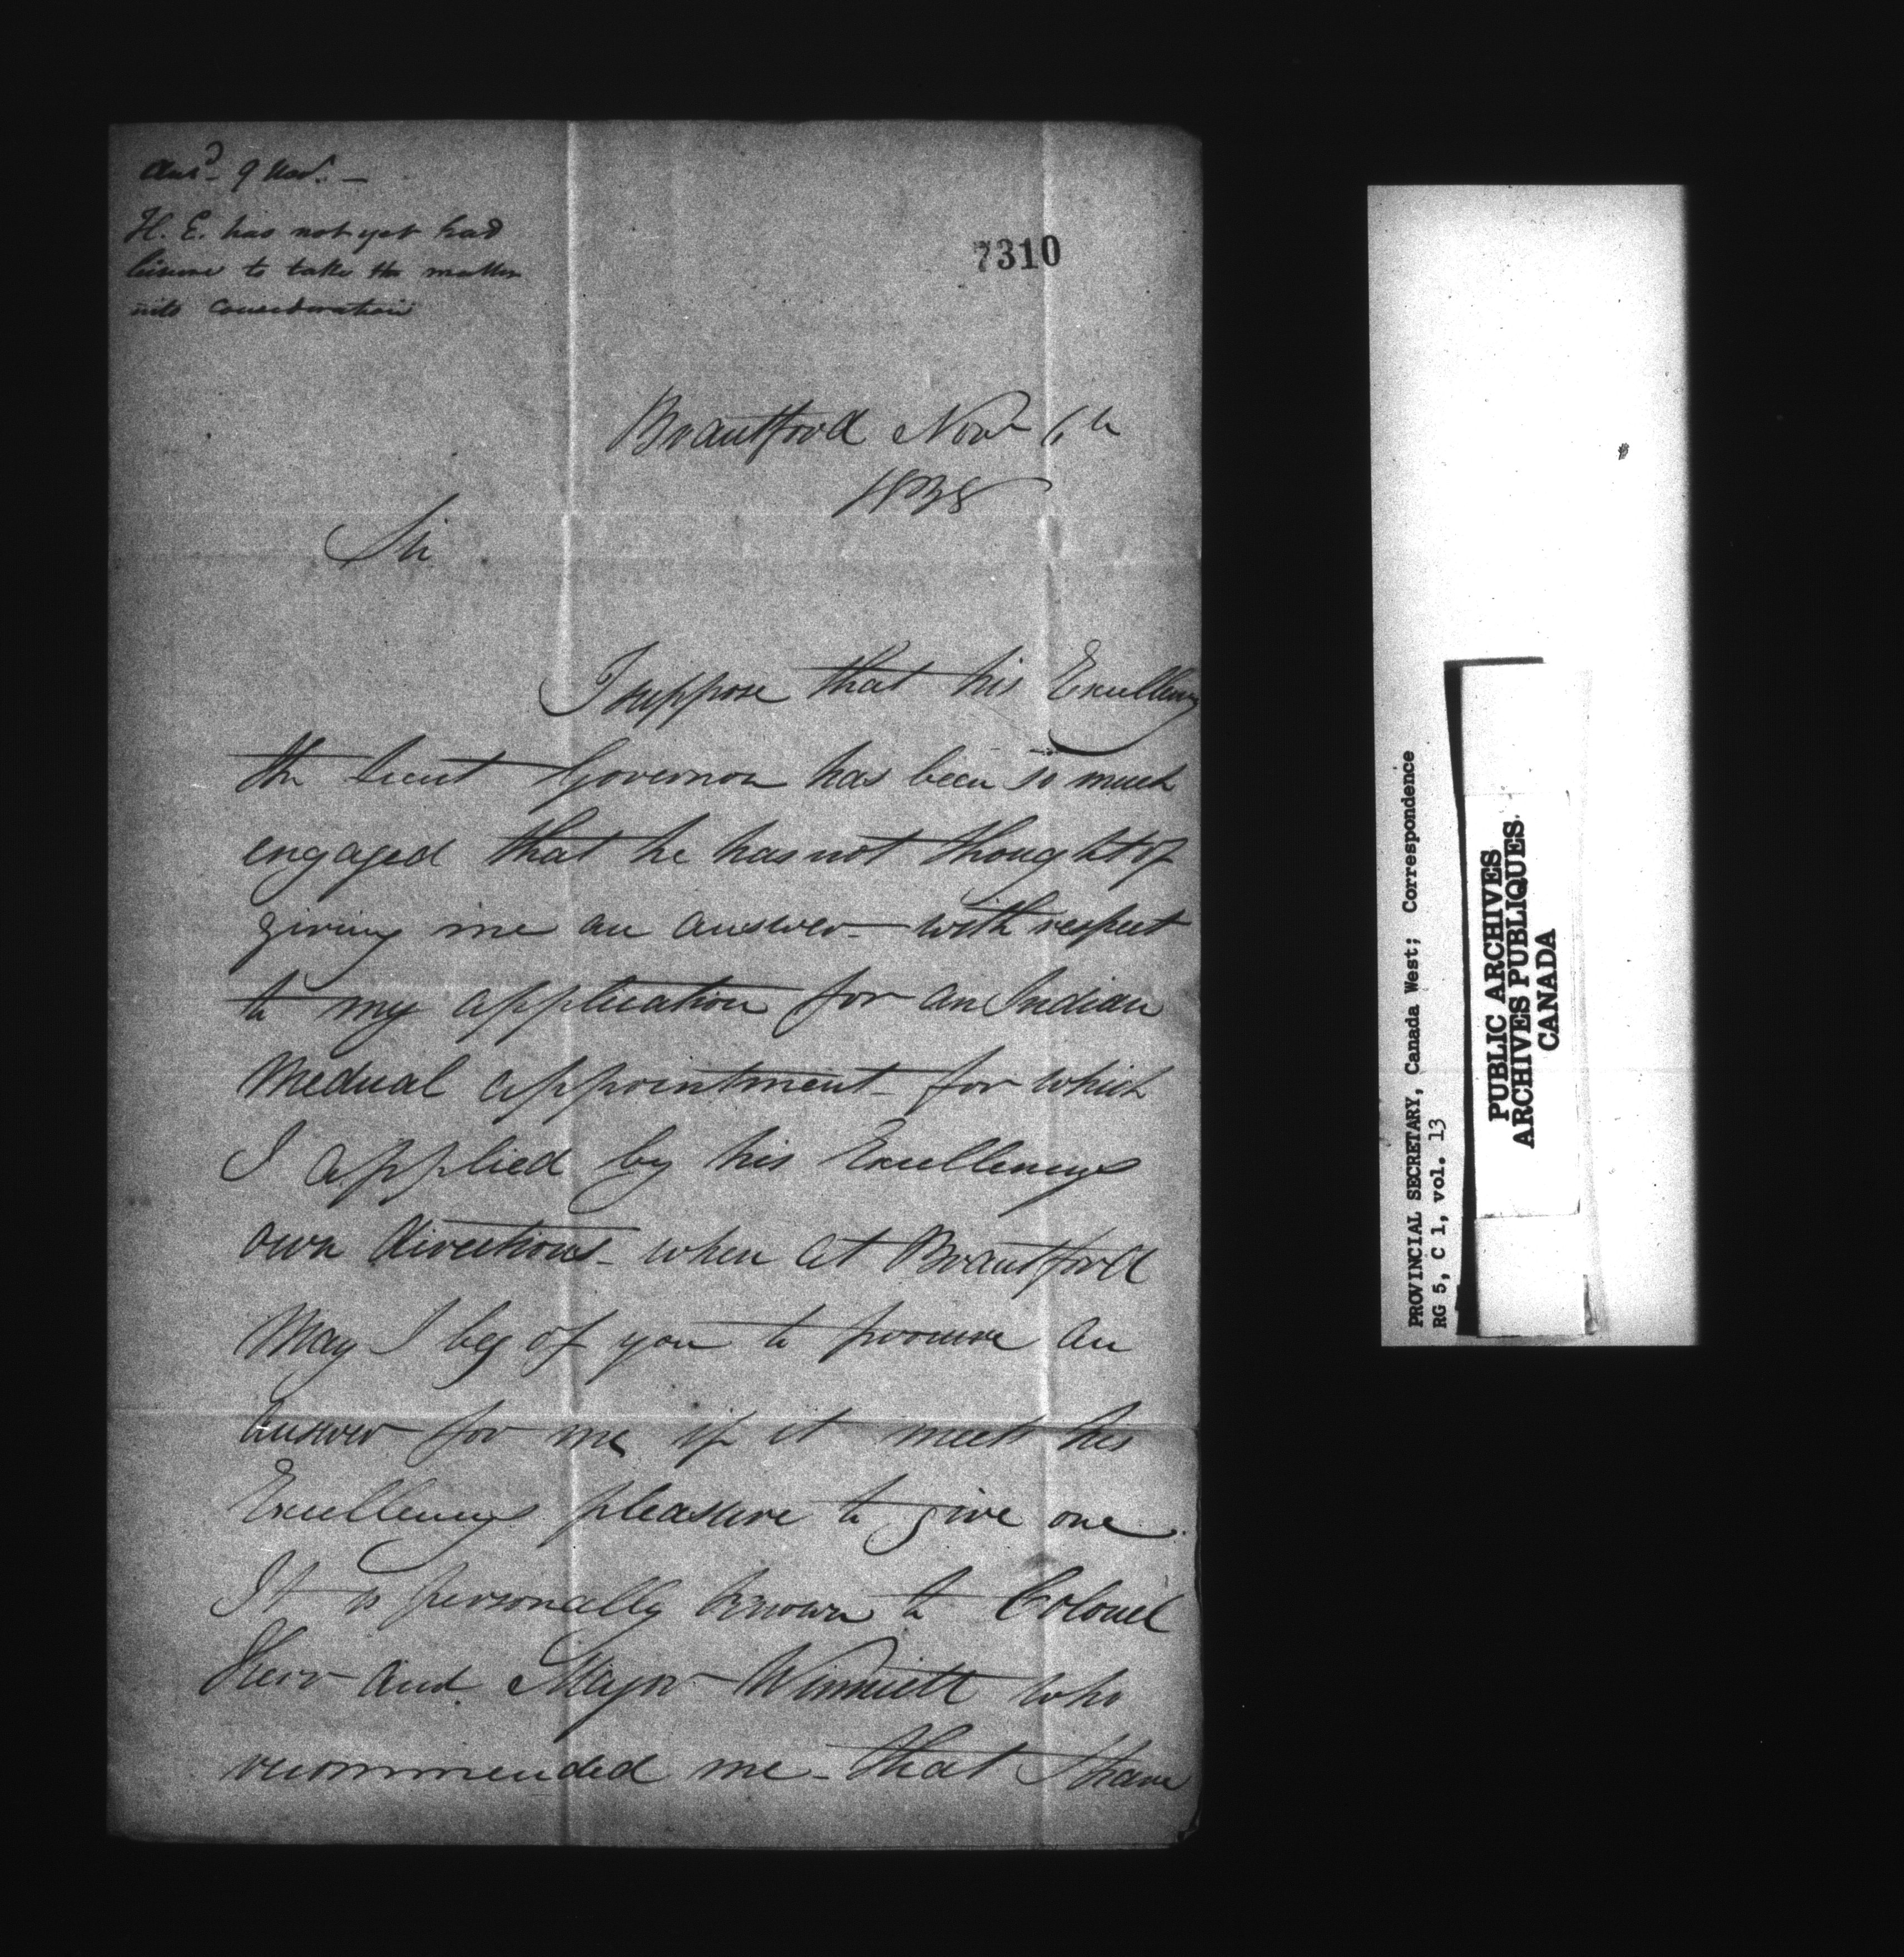 Ansd. 9 Novr. —
H. E. has not yet had
leisure to take the matter
into consideration
7310
Brantford Novr 6th
1838
Sir
I suppose that his Excellency
the Lieut Governor has been so much
engaged that he has not thought of
giving me an answer - with respect
to my application for an Indian
Medical appointment - for which
I applied by his Excellencys
own directions - when at Brantford
May I beg of you to procure an
answer for me if it meets his
Excellencys pleasure to give one.
It is personally known to Colonel
Kerr and Major Winniett who
recommended me - that I have
PROVINCIAL SECRETARY, Canada West; Correspondence
RG 5, C 1, vol. 13
PUBLIC ARCHIVES
ARCHIVES PUBLIQUES
CANADA